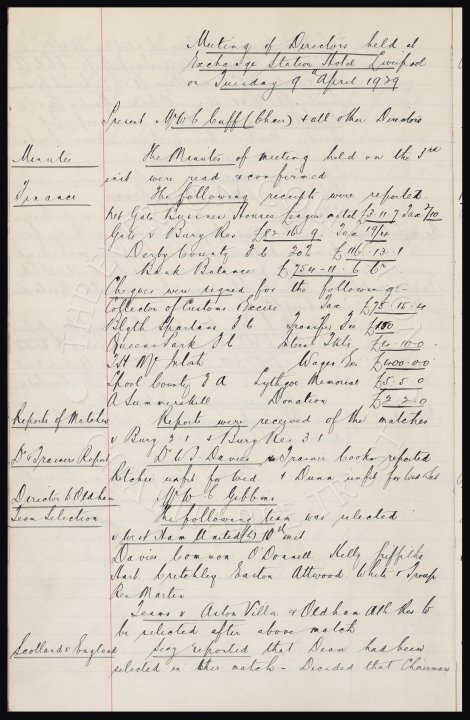 Meeting of Directors held at
Exchange Station Hotel Liverpool
on Tuesday 9th April 1929
Present Mr W C Cuff (Chair) & all other Directors
Minutes The Minutes of meeting held on the 3rd
inst were read & confirmed
Finance The following receipts were reported.
Net Gate Business Houses League match £3.11.7 Tax 2/10
Gate v Bury Res £82.16.9. Tax 19/4
Derby County F C £116.13.1
Bank Balance £754.11.6
Cheques were signed for the following:-
Collector of Customs & Excise Tax £78.15.4
Blyth Spartans F C Transfer Fee £100
Queens Park F C £4.10.0
T H McIntosh Wages &c £400.0.0
Lpool County F A Lythgoe Memorial £5.5.0
A Summerskill Donation £2.2.0
Reports of Matches Reports were received of the matches
v Bury 2.1 & Bury Res 3.1
Dr & Trainers Report Dr C S Davies & Trainer Cooke reported
Ritchie unfit for Wed & Dunn unfit for Wed & Sat
Director to Oldham Mr W C Gibbins
Team Selection The following team was selected
v West Ham United 10th inst
Davies Common O'Donnell Kelly Griffiths
Hart Critchley Easton Attwood White & Troup
Res Martin
Teams v Aston Villa & Oldham Ath Res to
be selected after above match
Scotland v England Secy reported that Dean had been
selected in this match - Decided that Chairman